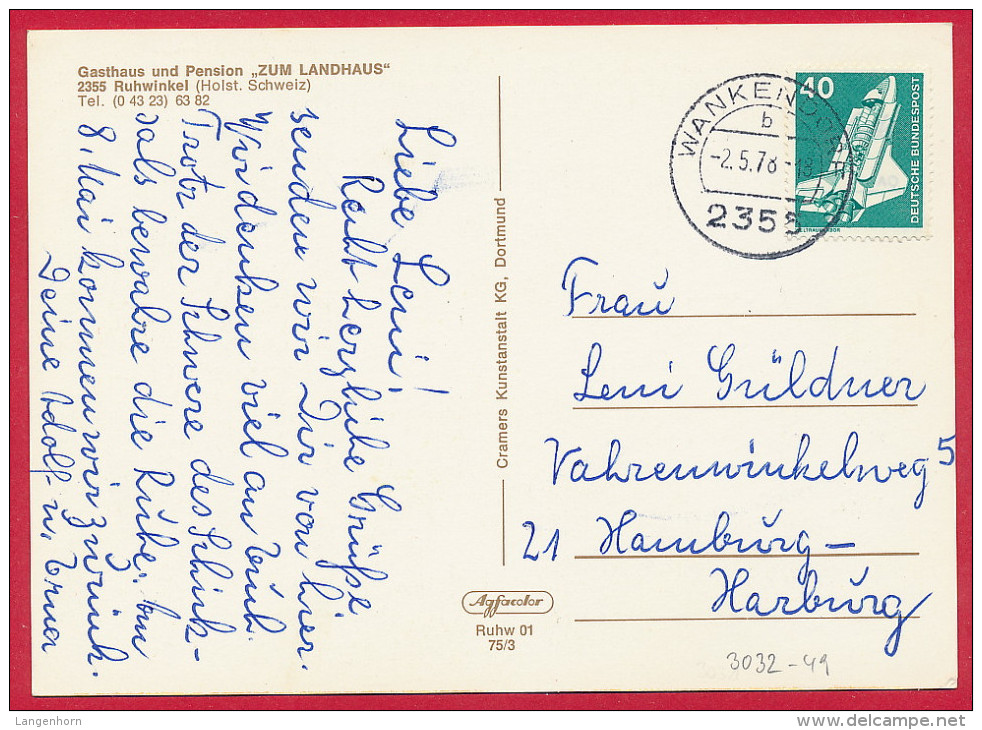 Gasthaus und Pension „ZUM LANDHAUS“
2355 Ruhwinkel (Holst. Schweiz)
Tel. (0 43 23) 63 82
Liebe Leni!
Recht herzliche Grüße
senden wir Dir von hier.
Wir denken viel an Euch.
Trotz der Schwere des Schick-
sals bewahre die Ruhe. Am
8. Mai kommen wir zurück.
Deine Adolf u. Erna
Cramers Kunstanstalt KG, Dortmund
Agfacolor
Ruhw 01
75/3
WANKENDORF
b
-2.5.78-18
2355
40
DEUTSCHE BUNDESPOST
Frau
Leni Güldner
Vahrenwinkelweg 5
21 Hamburg-
Harburg
3032-49
Langenhorn
www.delcampe.net